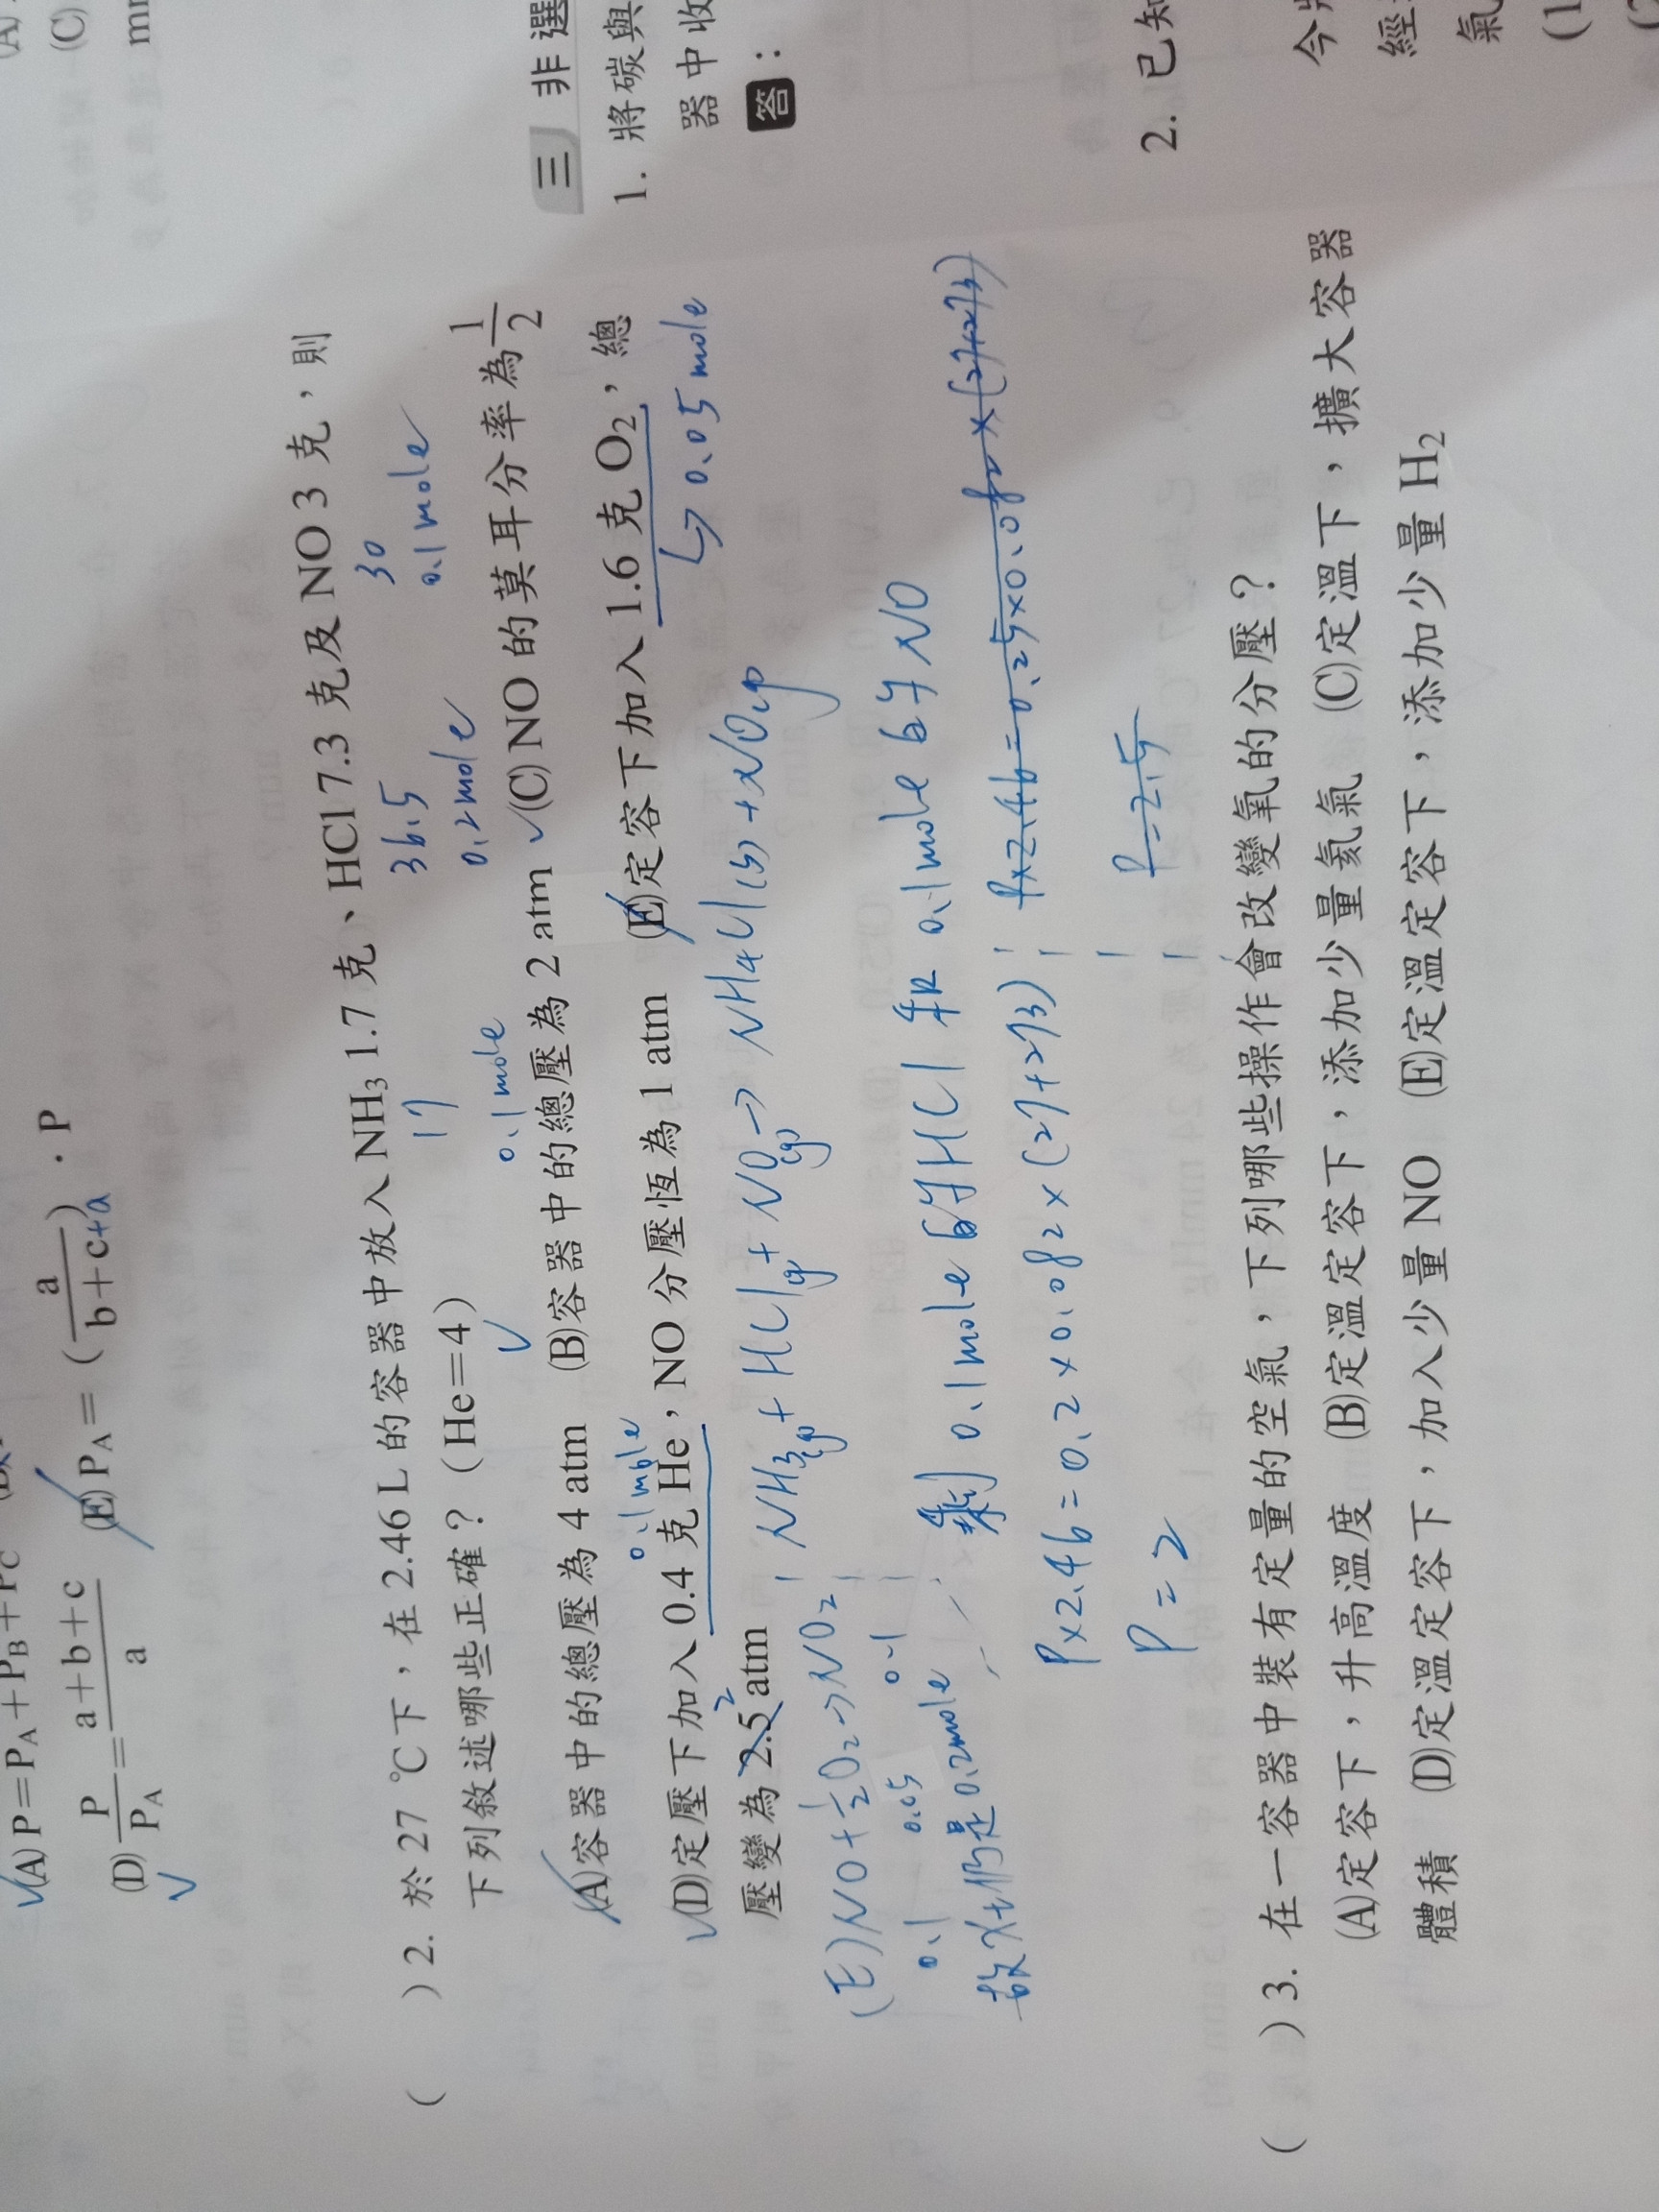 (A) P=PA+PB+PC
(D) P/PA = a+b+c/a (E) PA = (a/b+c+a)·P
( ) 2. 於 27 ℃下，在 2.46 L 的容器中放入 NH3 1.7 克、HCl 7.3 克及 NO 3 克，則
17 36.5 30
下列敘述哪些正確？（He=4）
0.1 mole 0.2 mole 0.1 mole
(A)容器中的總壓為 4 atm (B)容器中的總壓為 2 atm (C) NO 的莫耳分率為 1/2
0.1 mole
(D)定壓下加入 0.4 克 He，NO 分壓恆為 1 atm (E)定容下加入 1.6 克 O2，總
→ 0.05 mole
壓變為 2.5 atm
2
NH3(g) + HCl(g) + NO(g) → NH4Cl(s) + NO(g)
(E) NO + 1/2 O2 → NO2
0.1 0.05 0.1
故仍是0.2mole
剩 0.1 mole 的 HCl 和 0.1 mole 的 NO
P×2.46 = 0.2 × 0.082 × (27+273)
P = 2
P×2.46 = 0.25×0.082×(27+273)
P=2.5
( ) 3. 在一容器中裝有定量的空氣，下列哪些操作會改變氧的分壓？
(A)定容下，升高溫度 (B)定溫定容下，添加少量氦氣 (C)定溫下，擴大容器
體積 (D)定溫定容下，加入少量 NO (E)定溫定容下，添加少量 H2
(C)
三 非選
1. 將碳與
器中收
答：
2. 已知
今將
經
氣
(1
(2